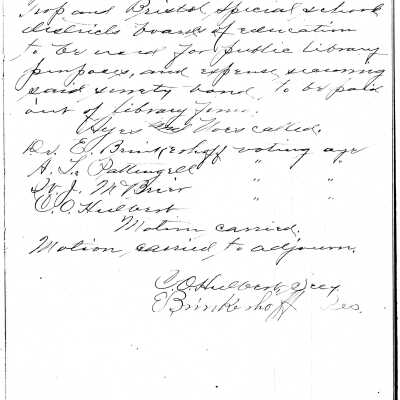 Trop and Bristol, special school
districts boards of education
to be used for public library
purposes, and expense securing
said surety bond, to be paid
out of library
Ayes and Noes called.
Dr. E. Brinkerhoff voting aye
A. L. Pattingell " "
W. J. McBrier " "
C. O. Hulbert " "
Motion carried.
Motion, carried, to adjourn.
C. O. Hulbert, Secy
E Brinkerhoff Pres.